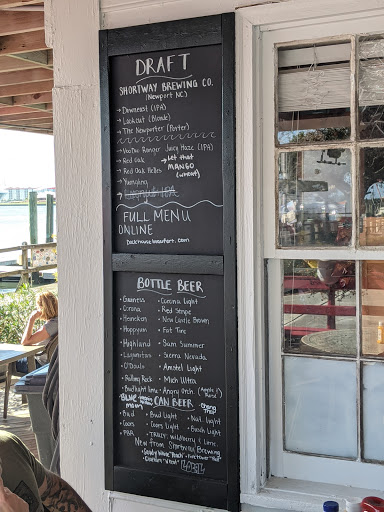 DRAFT
SHORTWAY BREWING CO.
(Newport NC)
→ Downeast (IPA)
→ Lookout (Blonde)
→ The Newporter (Porter)
→ VooDoo Ranger Juicy Haze (IPA)
→ Red Oak
→ Let that
→ Red Oak Helles
MANGO
→ Yuengling
(wheat)
FULL MENU
ONLINE
Dockhousebeaufort.com
BOTTLE BEER
• Guinness
• Corona Light
• Corona
• Red Stripe
• Heineken
• New Castle Brown
• Hoppyum
• Fat Tire
• Highland
• Sam Summer
• Lagunitas
• Sierra Nevada
• O'Douls
• Amstel Light
• Rolling Rock
• Mich Ultra
• Bud light lime
• Angry Orch. (Apple / Rosé)
BLUE moon
CAN BEER
• Bud
• Bud Light
• Nat. light
• Coors
• Coors Light
• Busch Light
• PBR
• TRULY: wildberry / Lime
New from Shortway Brewing